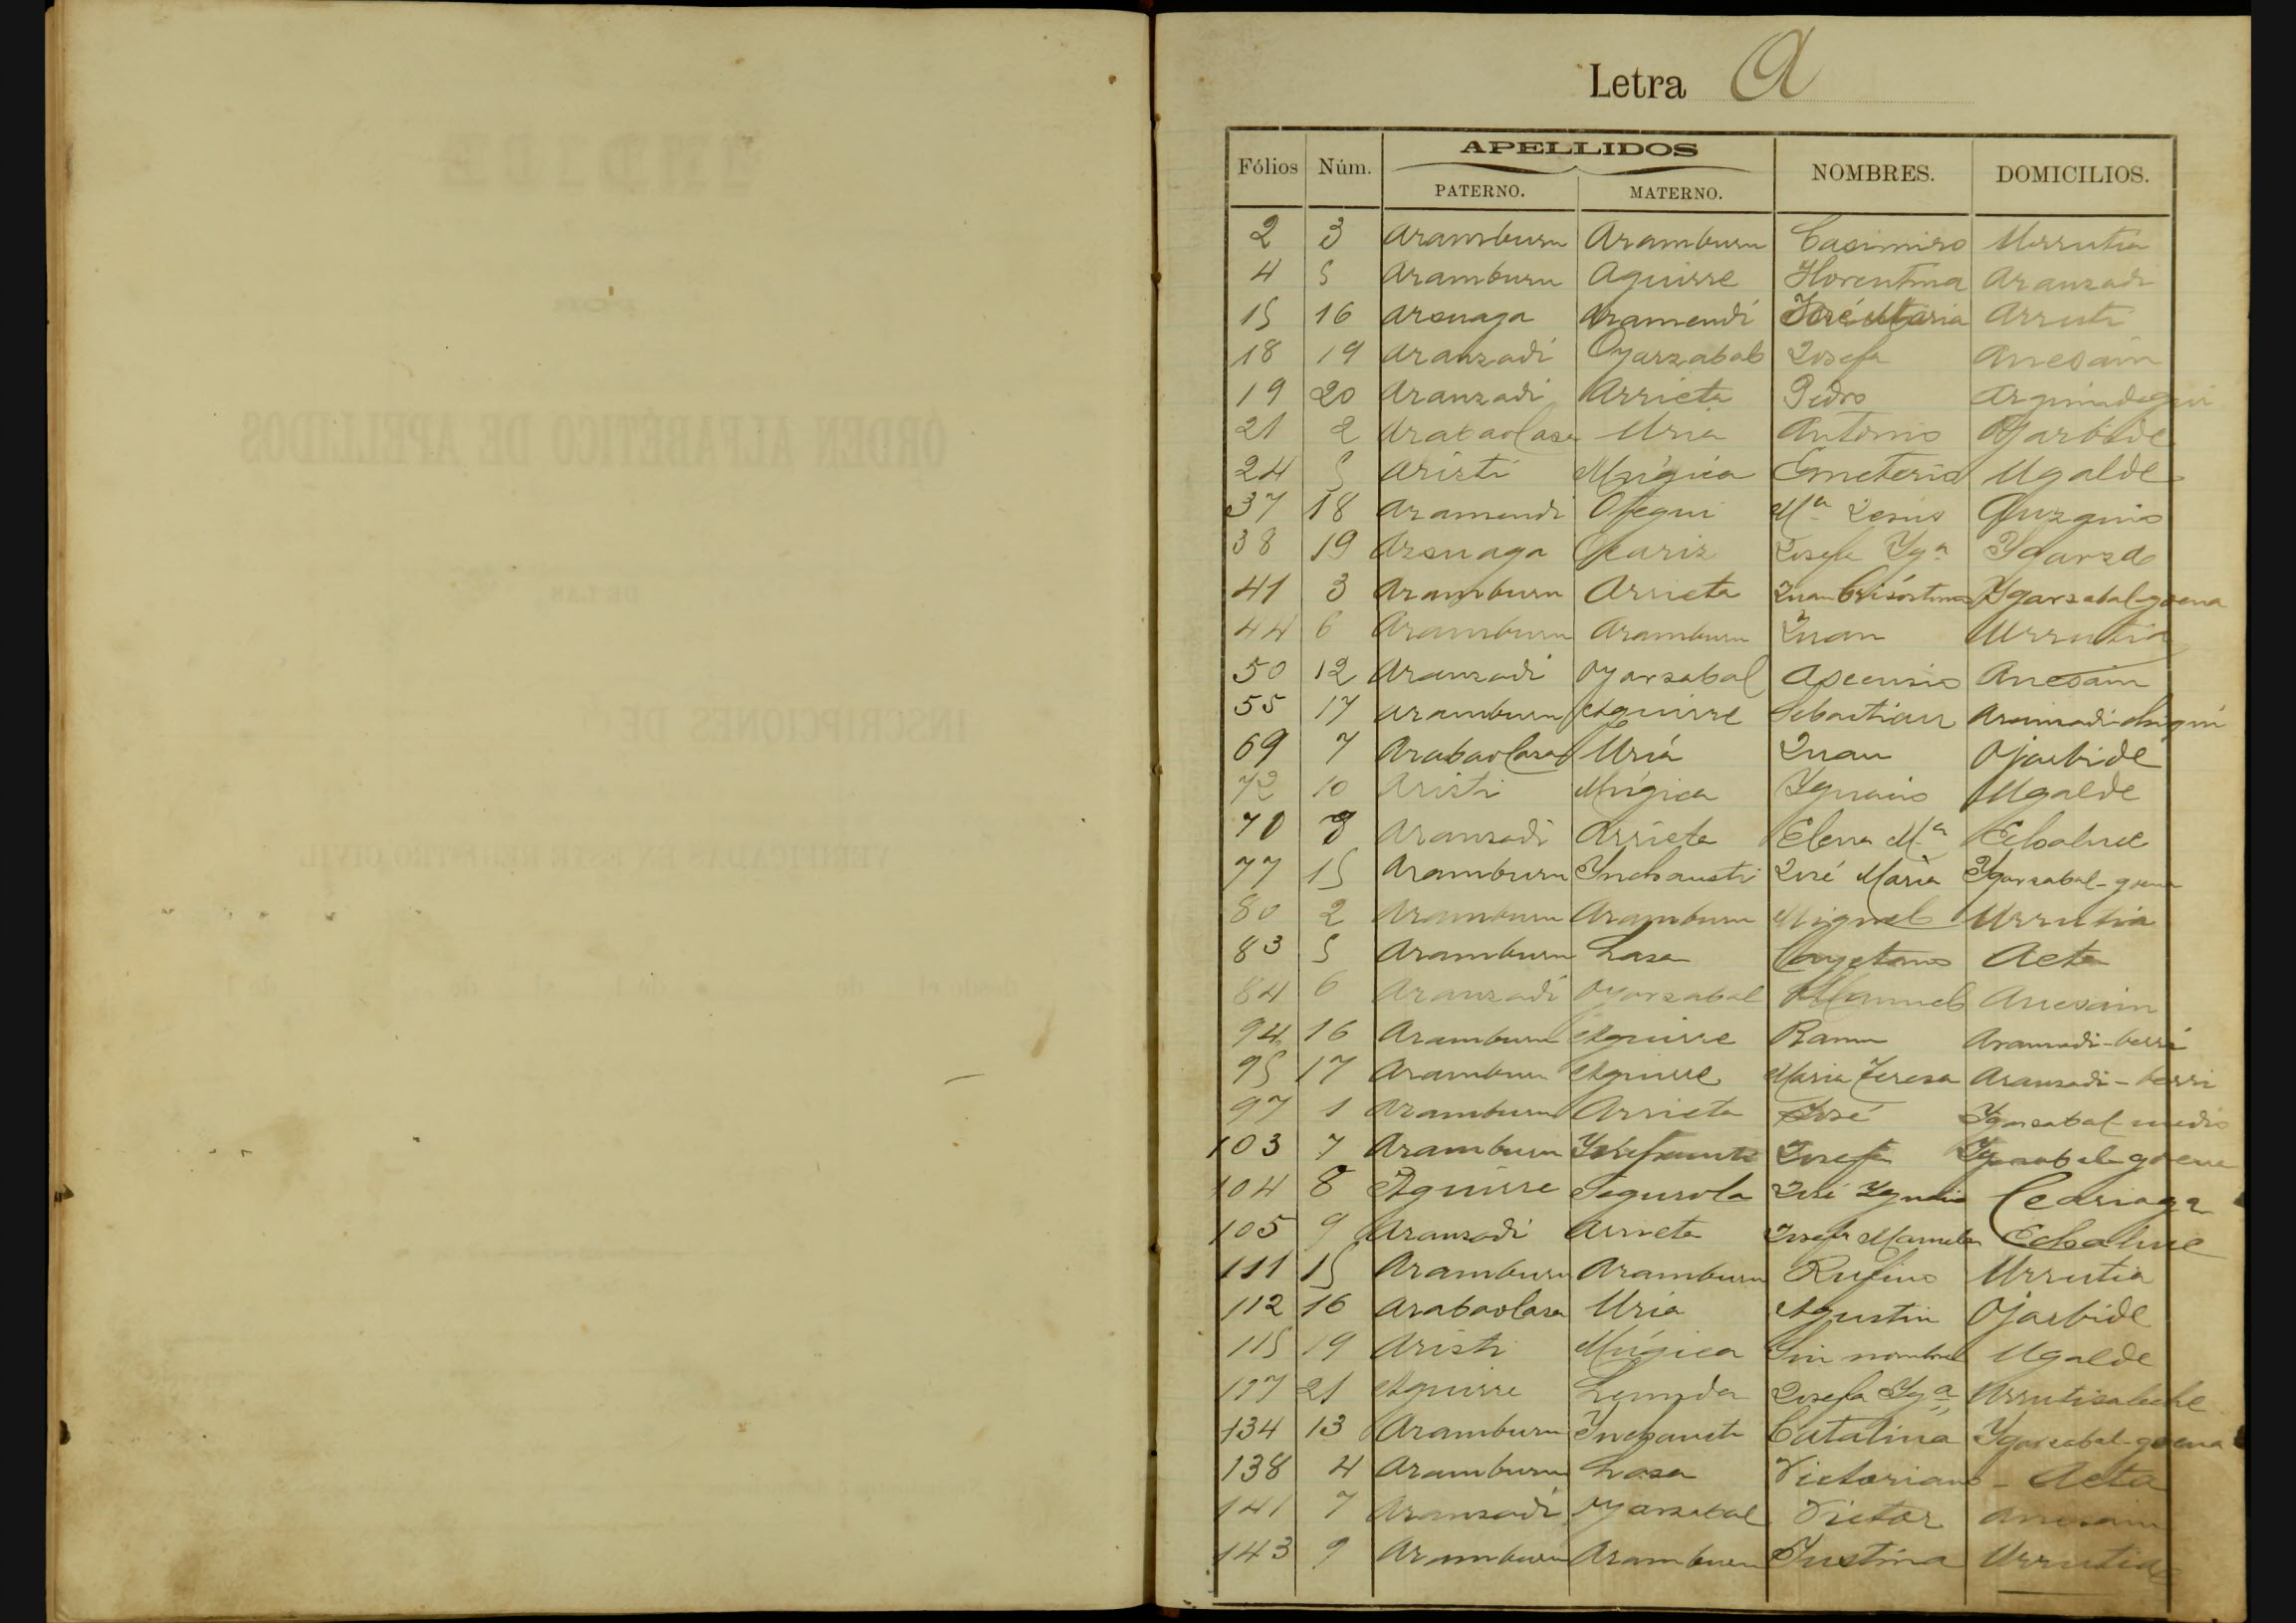 Letra A
Fólios Núm. APELLIDOS NOMBRES. DOMICILIOS.
PATERNO. MATERNO.
2 3 Aramburu Aramburu Casimiro Urrutia
4 5 Aramburu Aguirre Florentina Aranzadi
15 16 Arsuaga Aramendi José Maria Arruti
18 19 Aranzadi Oyarzabal Josefa Anesain
19 20 Aranzadi Arrieta Pedro
21 2 Arabaolasa Uria Antonio Ojarbide
24 5 Aristi Múgica Emeterio Ugalde
37 18 Aramendi Otegui Mª Jesus
38 19 Arsuaga Josefa Ygª
41 3 Aramburu Arrieta Juan Crisóstomo Ygarzabal-goena
44 6 Aramburu Aramburu Juan Urrutia
50 12 Aranzadi Oyarzabal Ascensio Anesain
55 17 Aramburu Aguirre Sebastian
69 7 Arabaolasa Uria Juan Ojarbide
72 10 Aristi Múgica Ygnacio Ugalde
70 8 Aranzadi Arrieta Elena Mª Echalue
77 15 Aramburu Ynchausti José Maria Ygarzabal-goena
80 2 Aramburu Aramburu Miguel Urrutia
83 5 Aramburu Lasa Cayetano Aeta
84 6 Aranzadi Oyarzabal Manuel Anesain
94 16 Aramburu Aguirre Ramon Aranzadi-berri
95 17 Aramburu Aguirre Maria Teresa Aranzadi-berri
97 1 Aramburu Arrieta José Ygarzabal-medio
103 7 Aramburu Josefa Ygarzabal-goena
104 8 Aguirre Segurola José Ygnacio
105 9 Aranzadi Arrieta Josefa Manuela Echalue
111 15 Aramburu Aramburu Rufino Urrutia
112 16 Arabaolasa Uria Agustin Ojarbide
115 19 Aristi Múgica Sin nombre Ugalde
117 21 Aguirre Josefa Ygª
134 13 Aramburu Ynchausti Catalina Ygarzabal-goena
138 4 Aramburu Lasa Victoriano - Aeta
141 7 Aranzadi Oyarzabal Victor Anesain
143 9 Aramburu Aramburu Justina Urrutia